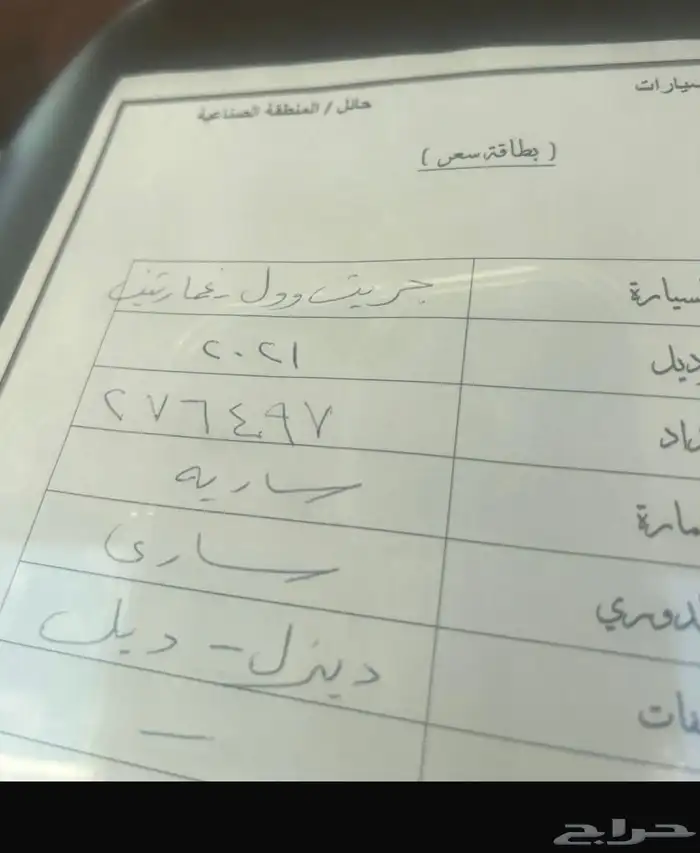 سيارات
حائل / المنطقة الصناعية
( بطاقة سعر )
سيارة جريت وول غمارتين
ديل ٢٠٢١
داد ٢٧٦٤٩٧
مارة ساريه
لدوري سارى
فات ديزل - دبل
—
حراج